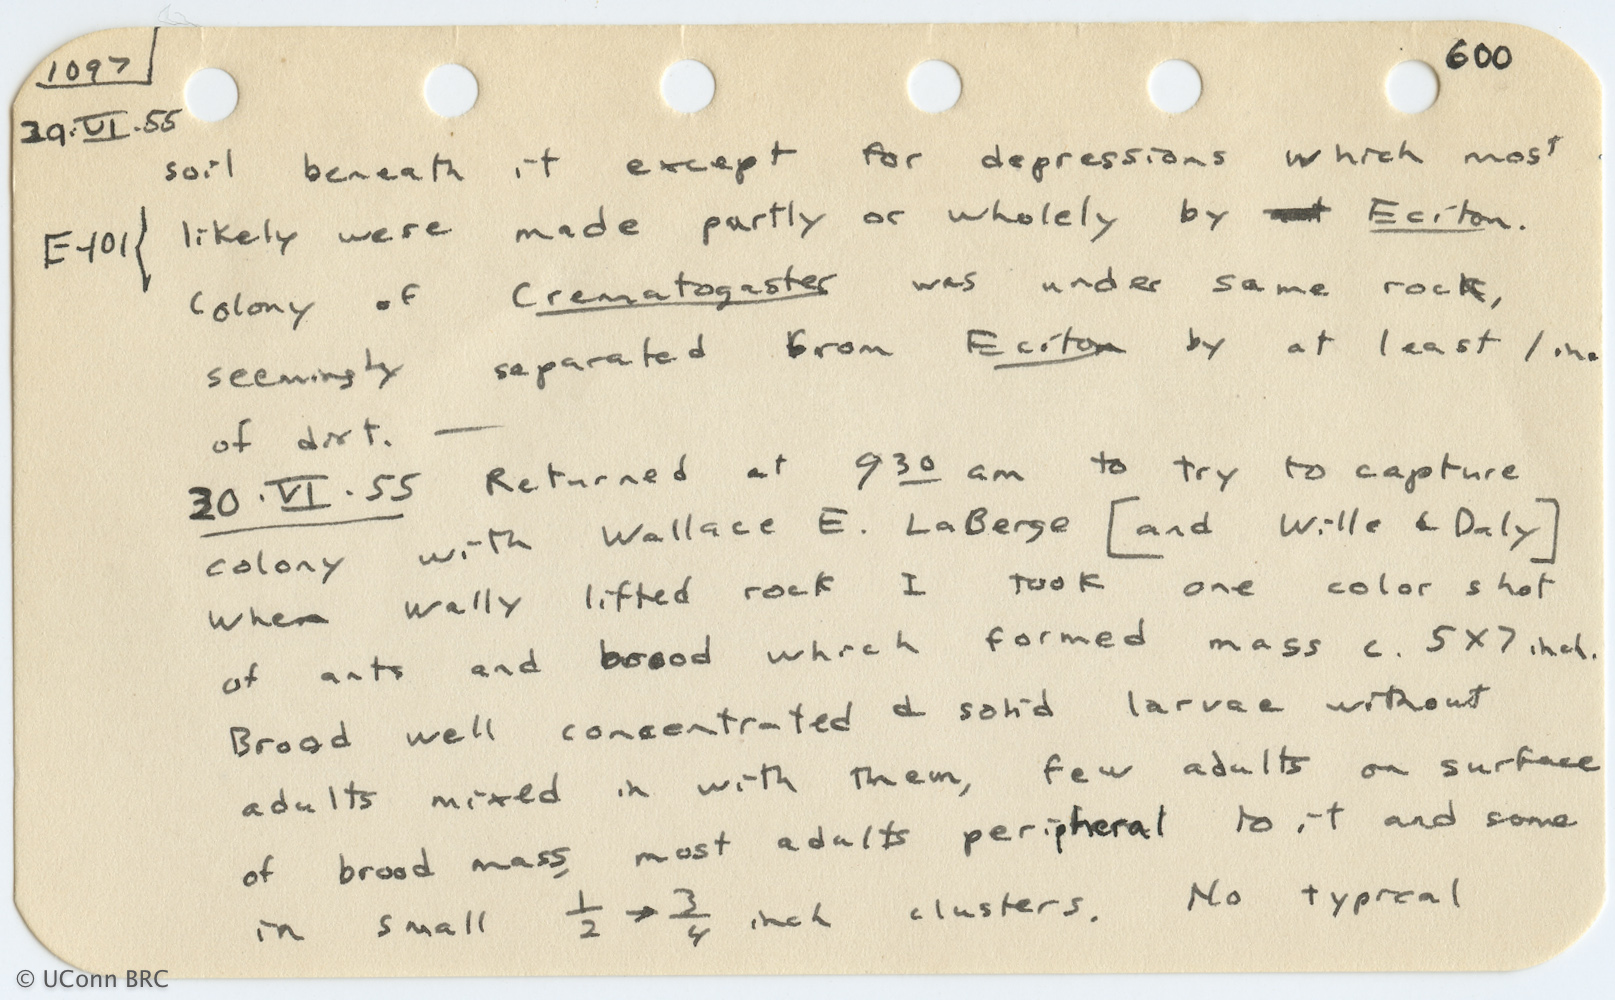 1097
600
29.VI.55
soil beneath it except for depressions which most
E-101{ likely were made partly or wholely by Eciton.
Colony of Crematogaster was under same rock,
seemingly separated from Eciton by at least 1 inc
of dirt. —
30.VI.55 Returned at 930 am to try to capture
colony with Wallace E. LaBerge [and Wille & Daly]
When Wally lifted rock I took one color shot
of ants and brood which formed mass c. 5X7 inch.
Brood well concentrated & solid larvae without
adults mixed in with them, few adults on surface
of brood mass, most adults peripheral to it and some
in small 1/2 → 3/4 inch clusters. No typical
© UConn BRC